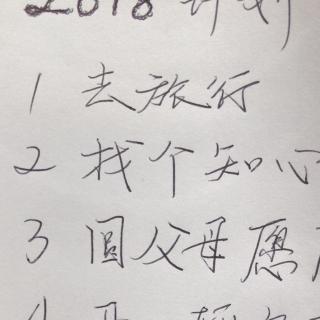 2018 计划
1 去旅行
2 找个知心
3 圆父母愿
4